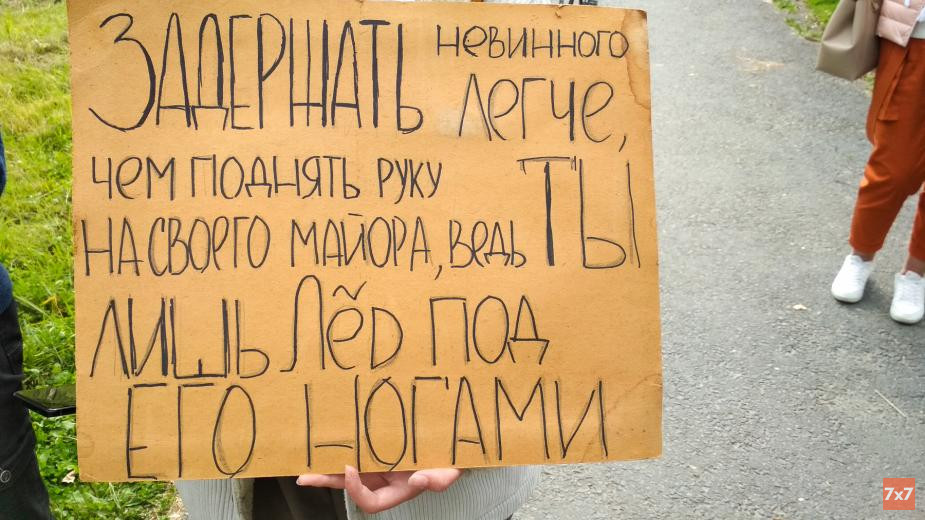 ЗАДЕРЖАТЬ невинного
ЛЕГЧЕ,
ЧЕМ ПОДНЯТЬ РУКУ
НА СВОЕГО МАЙОРА, ВЕДЬ ТЫ
ЛИШЬ ЛЁD ПОД
ЕГО НОГАМИ
7x7